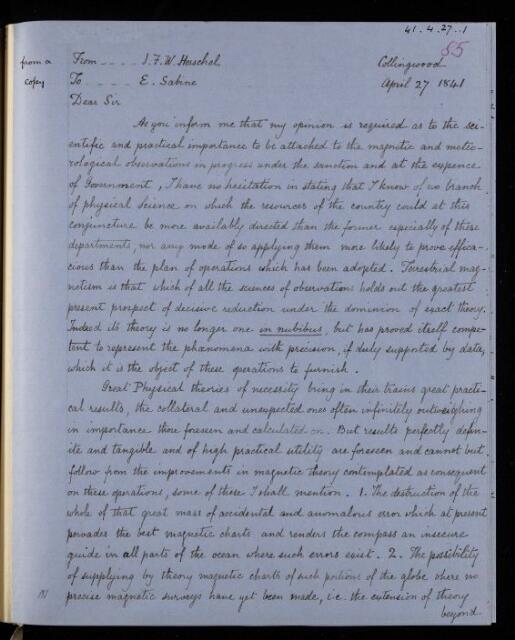 41.4.27..1
55
from a
copy
From - - - - J.F.W. Herschel
Collingwood
To - - - - E. Sabine
April 27 1841
Dear Sir
As you inform me that my opinion is required as to the sci-
entific and practical importance to be attached to the magnetic and meteo-
rological observations in progress under the sanction and at the expence
of Government, I have no hesitation in stating that I know of no branch
of physical science on which the resources of the country could at this
conjuncture be more availably directed than the former especially of these
departments, nor any mode of so applying them more likely to prove effica-
cious than the plan of operations which has been adopted. Terrestrial mag-
netism is that which of all the sciences of observations holds out the greatest
present prospect of decisive reduction under the dominion of exact theory.
Indeed its theory is no longer one in nubibus, but has proved itself compe-
tent to represent the phænomena with precision, if duly supported by data,
which it is the object of these operations to furnish.
Great Physical theories of necessity bring in their trains great practi-
cal results, the collateral and unexpected ones often infinitely outweighing
in importance those foreseen and calculated on. But results perfectly defin-
ite and tangible and of high practical utility are foreseen and cannot but
follow from the improvements in magnetic theory contemplated as consequent
on these operations, some of these I shall mention. 1. The destruction of the
whole of that great mass of accidental and anomalous error which at present
pervades the best magnetic charts and renders the compass an insecure
guide in all parts of the ocean where such errors exist. 2. The possibility
of supplying by theory magnetic charts of such portions of the globe where no
precise magnetic surveys have yet been made, i.e. the extension of theory
beyond